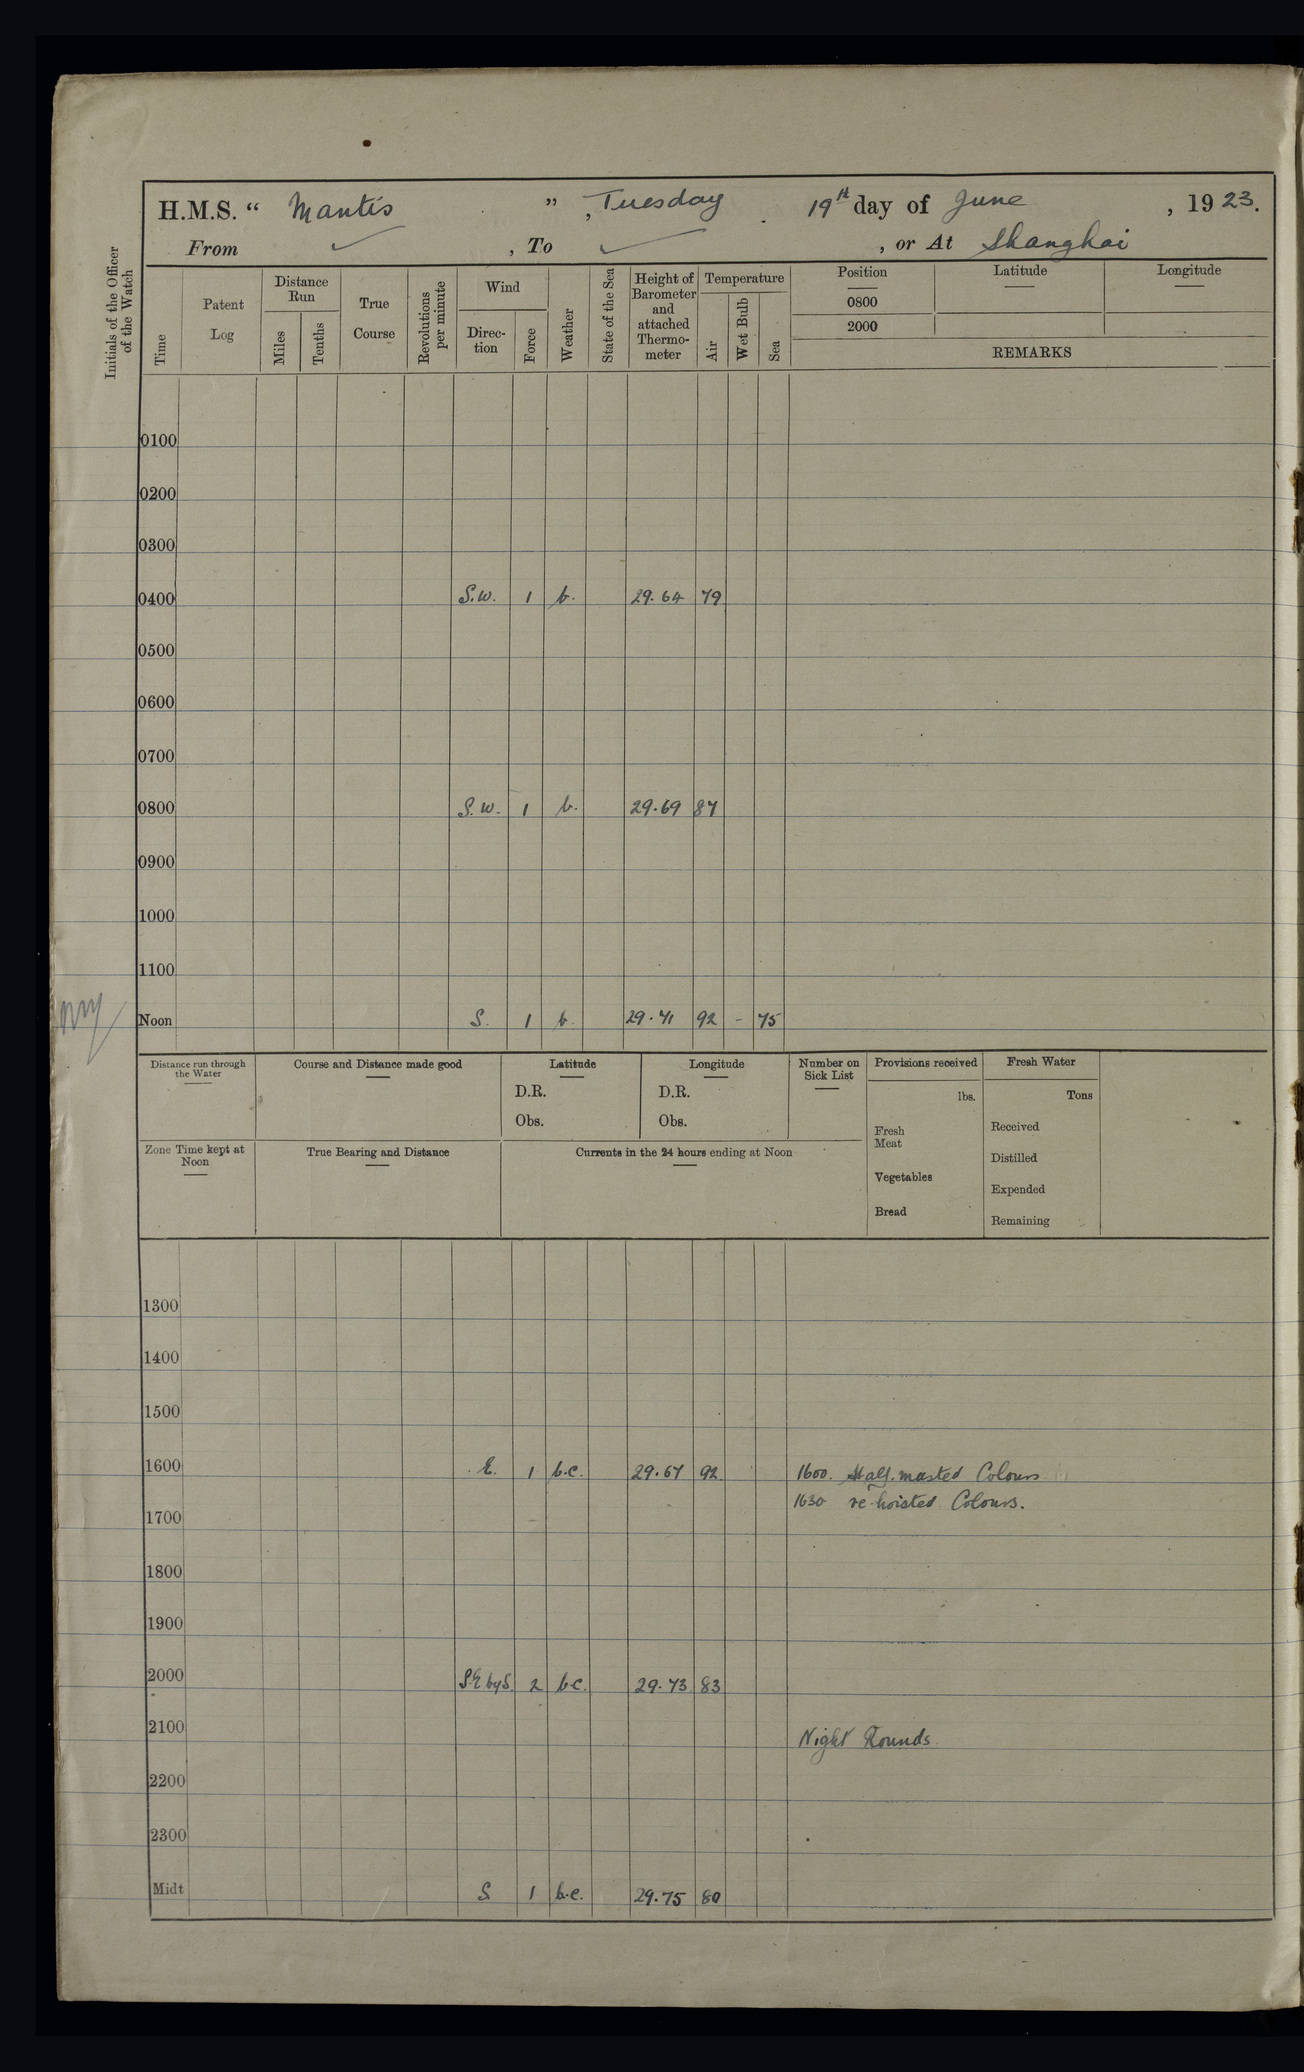 H.M.S. " Mantis ", Tuesday 19th day of June, 1923.
From ✓, To ✓, or At Shanghai
Initials of the Officer of the Watch
Time
Patent Log
Distance Run
Miles
Tenths
True Course
Revolutions per minute
Wind
Direc-tion
Force
Weather
State of the Sea
Height of Barometer and attached Thermo-meter
Temperature
Air
Wet Bulb
Sea
Position Latitude Longitude
0800
2000
REMARKS
0100
0200
0300
0400 S.W. 1 b. 29.64 79
0500
0600
0700
0800 S.W. 1 b. 29.69 87
0900
1000
1100
Noon S. 1 b. 29.71 92 - 75
Distance run through the Water
Course and Distance made good
Latitude
D.R.
Obs.
Longitude
D.R.
Obs.
Number on Sick List
Provisions received
lbs.
Fresh Meat
Vegetables
Bread
Fresh Water
Tons
Received
Distilled
Expended
Remaining
Zone Time kept at Noon
True Bearing and Distance
Currents in the 24 hours ending at Noon
1300
1400
1500
1600 E. 1 b.c. 29.67 92 1600. Half-masted Colours
1630 re-hoisted Colours.
1700
1800
1900
2000 S.E by S. 2 b.c. 29.73 83
2100 Night Rounds
2200
2300
Midt S 1 b.c. 29.75 80